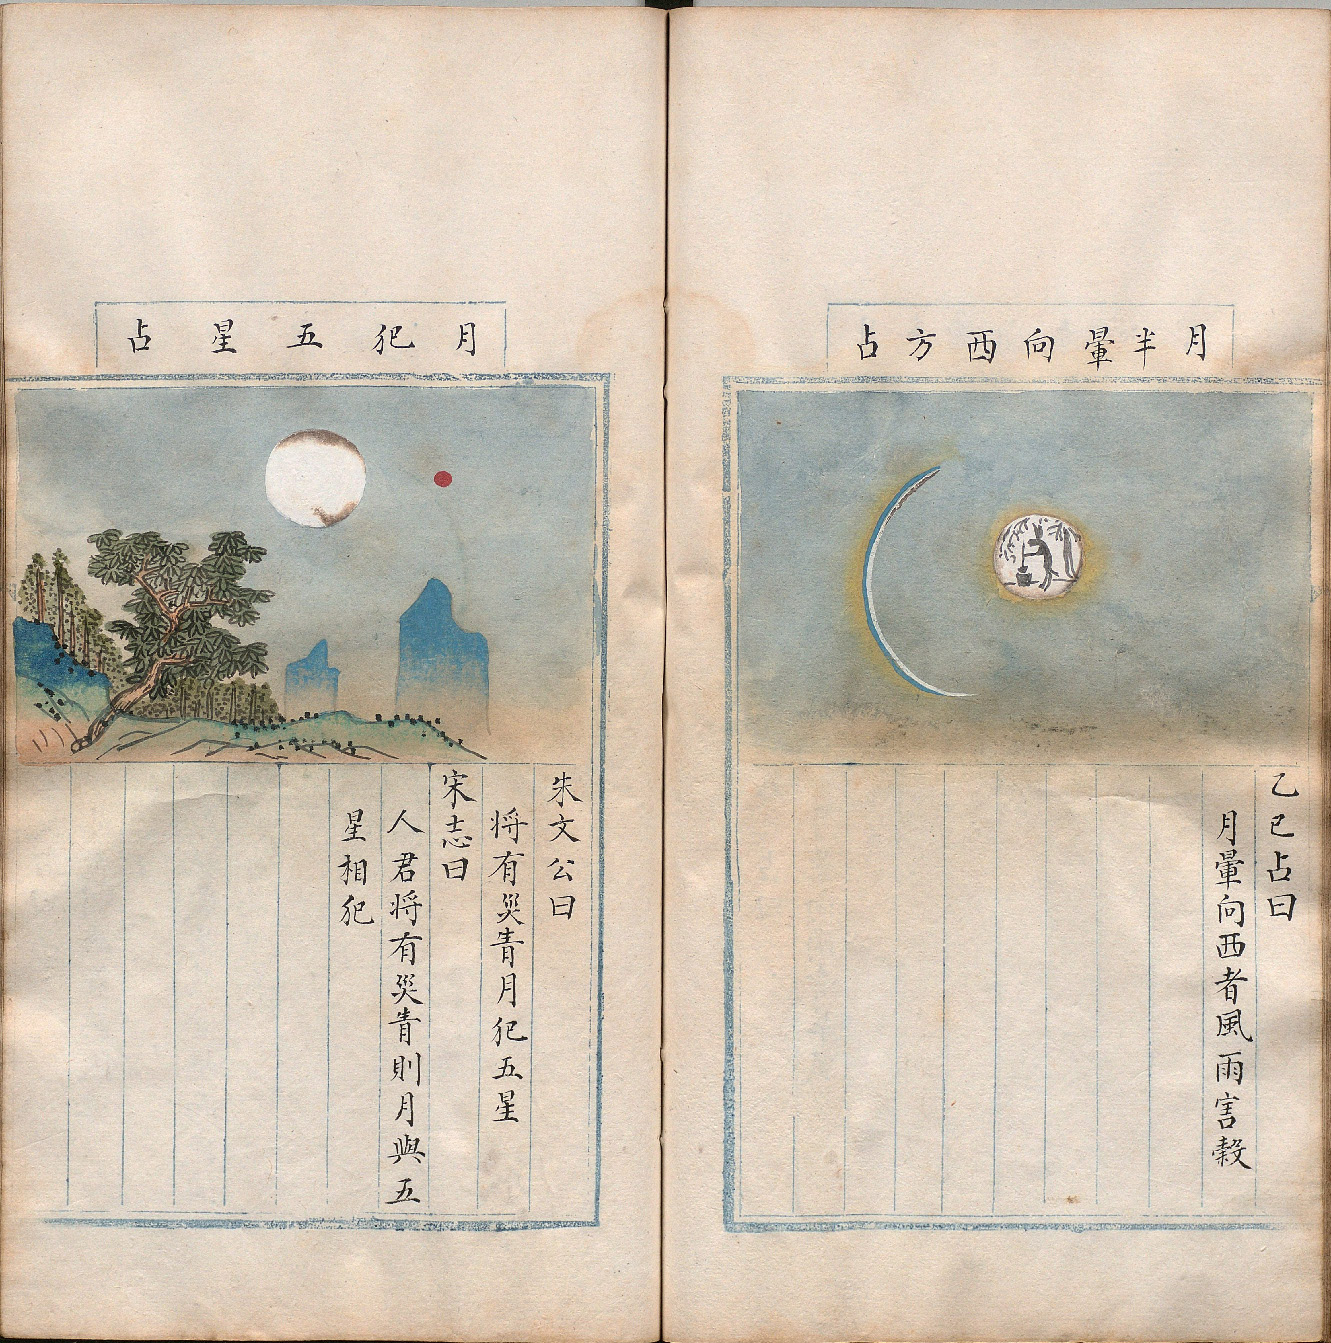 月半暈向西方占
乙巳占曰
月暈向西者風雨害穀
月犯五星占
朱文公曰
將有災眚月犯五星
宋志曰
人君將有災眚則月與五
星相犯